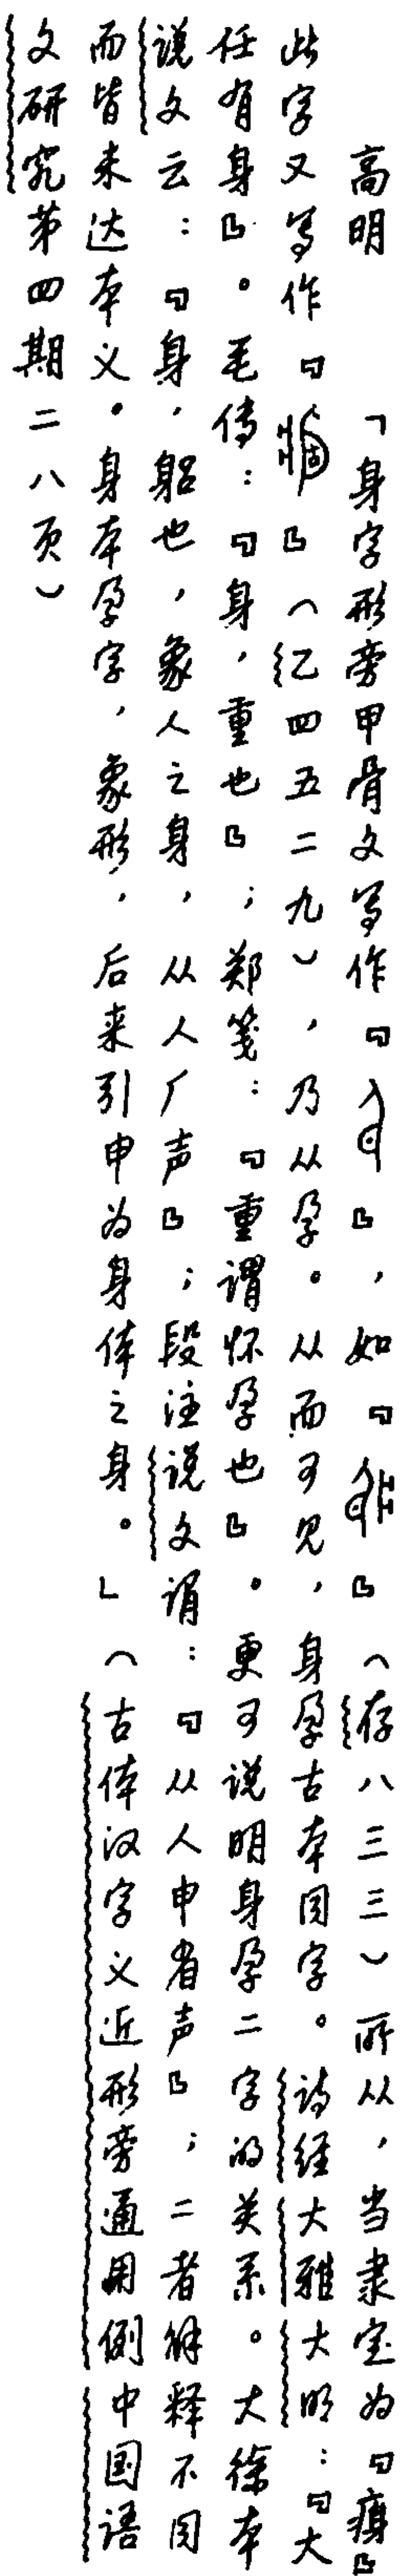 高明　「身字形旁甲骨文写作『』，如『』（存八三三）所从，当隶定为『㾕』
此字又写作『』（乙四五二九），乃从孕。从而可见，身孕古本同字。诗经大雅大明：『大
任有身』。毛传：『身，重也』；郑笺：『重谓怀孕也』。更可说明身孕二字的关系。大徐本
说文云：『身，躳也，象人之身，从人厂声』；段注说文谓：『从人申省声』；二者解释不同
而皆未达本义。身本孕字，象形，后来引申为身体之身。」（古体汉字义近形旁通用例 中国语
文研究第四期二八页）